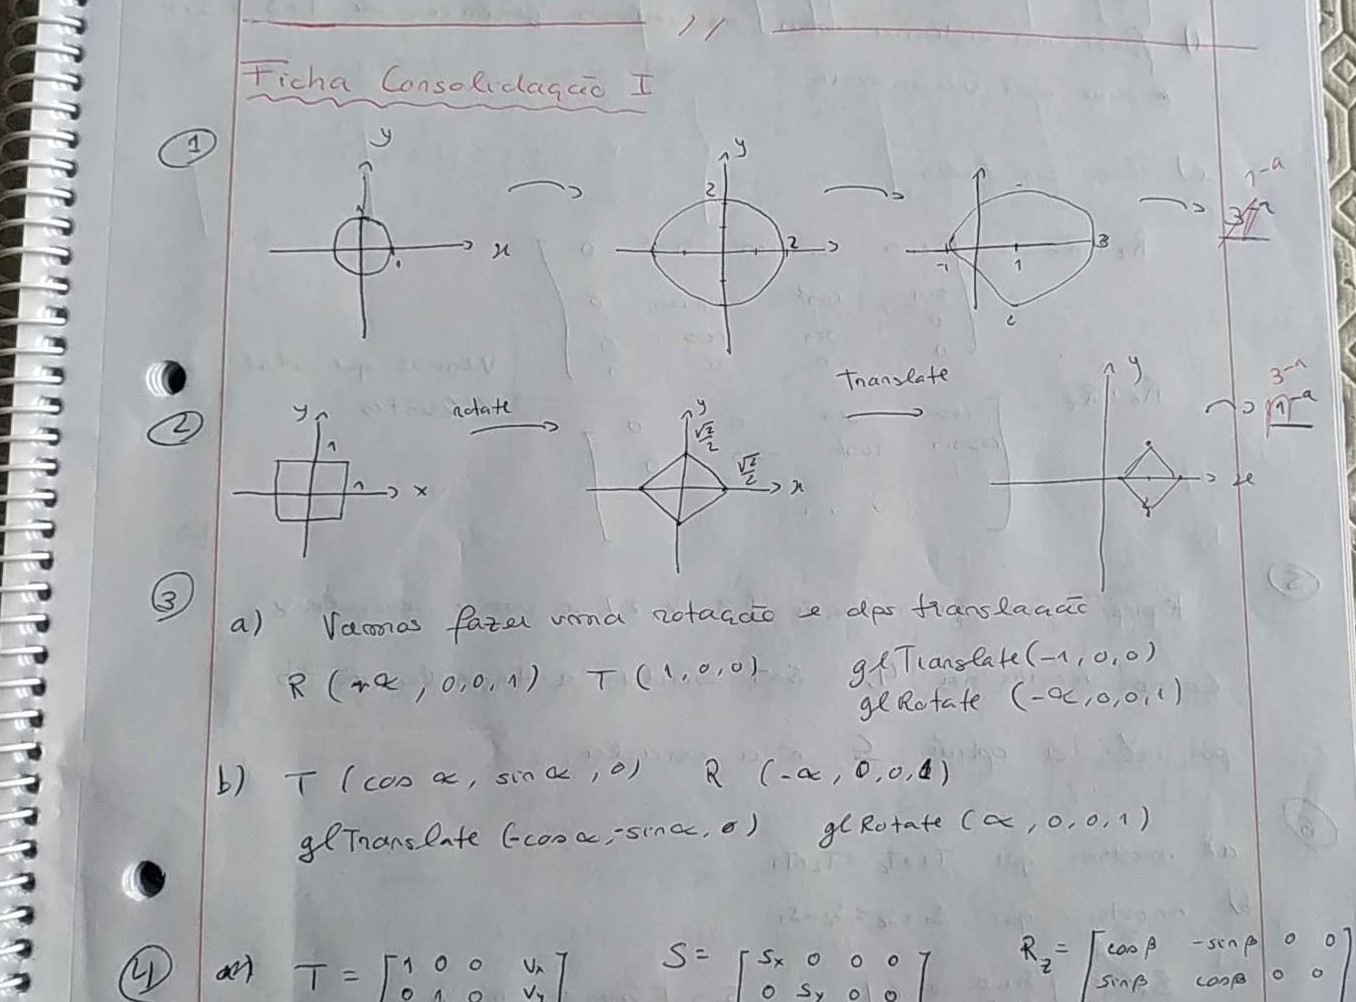 Ficha Consolidação I
1
y
1
x
1
y
2
2
3
-1
1
3
1-a
2
rotate
translate
y
1
1
x
y
√2/2
√2/2
x
y
x
3-a
1-a
3
a) Vamos fazer uma rotação e dps translação
R (-α, 0,0,1) T (1,0,0) glTranslate(-1,0,0)
glRotate (-α,0,0,1)
b) T (cos α, sin α, 0) R (-α, 0,0,1)
glTranslate (-cos α,-sin α, 0) glRotate (α, 0,0,1)
4 a) T = [1 0 0 Vx S = [Sx 0 0 0 Rz = [cosβ -sinβ 0 0
0 1 0 Vy] 0 Sy 0 0] sinβ cosβ 0 0